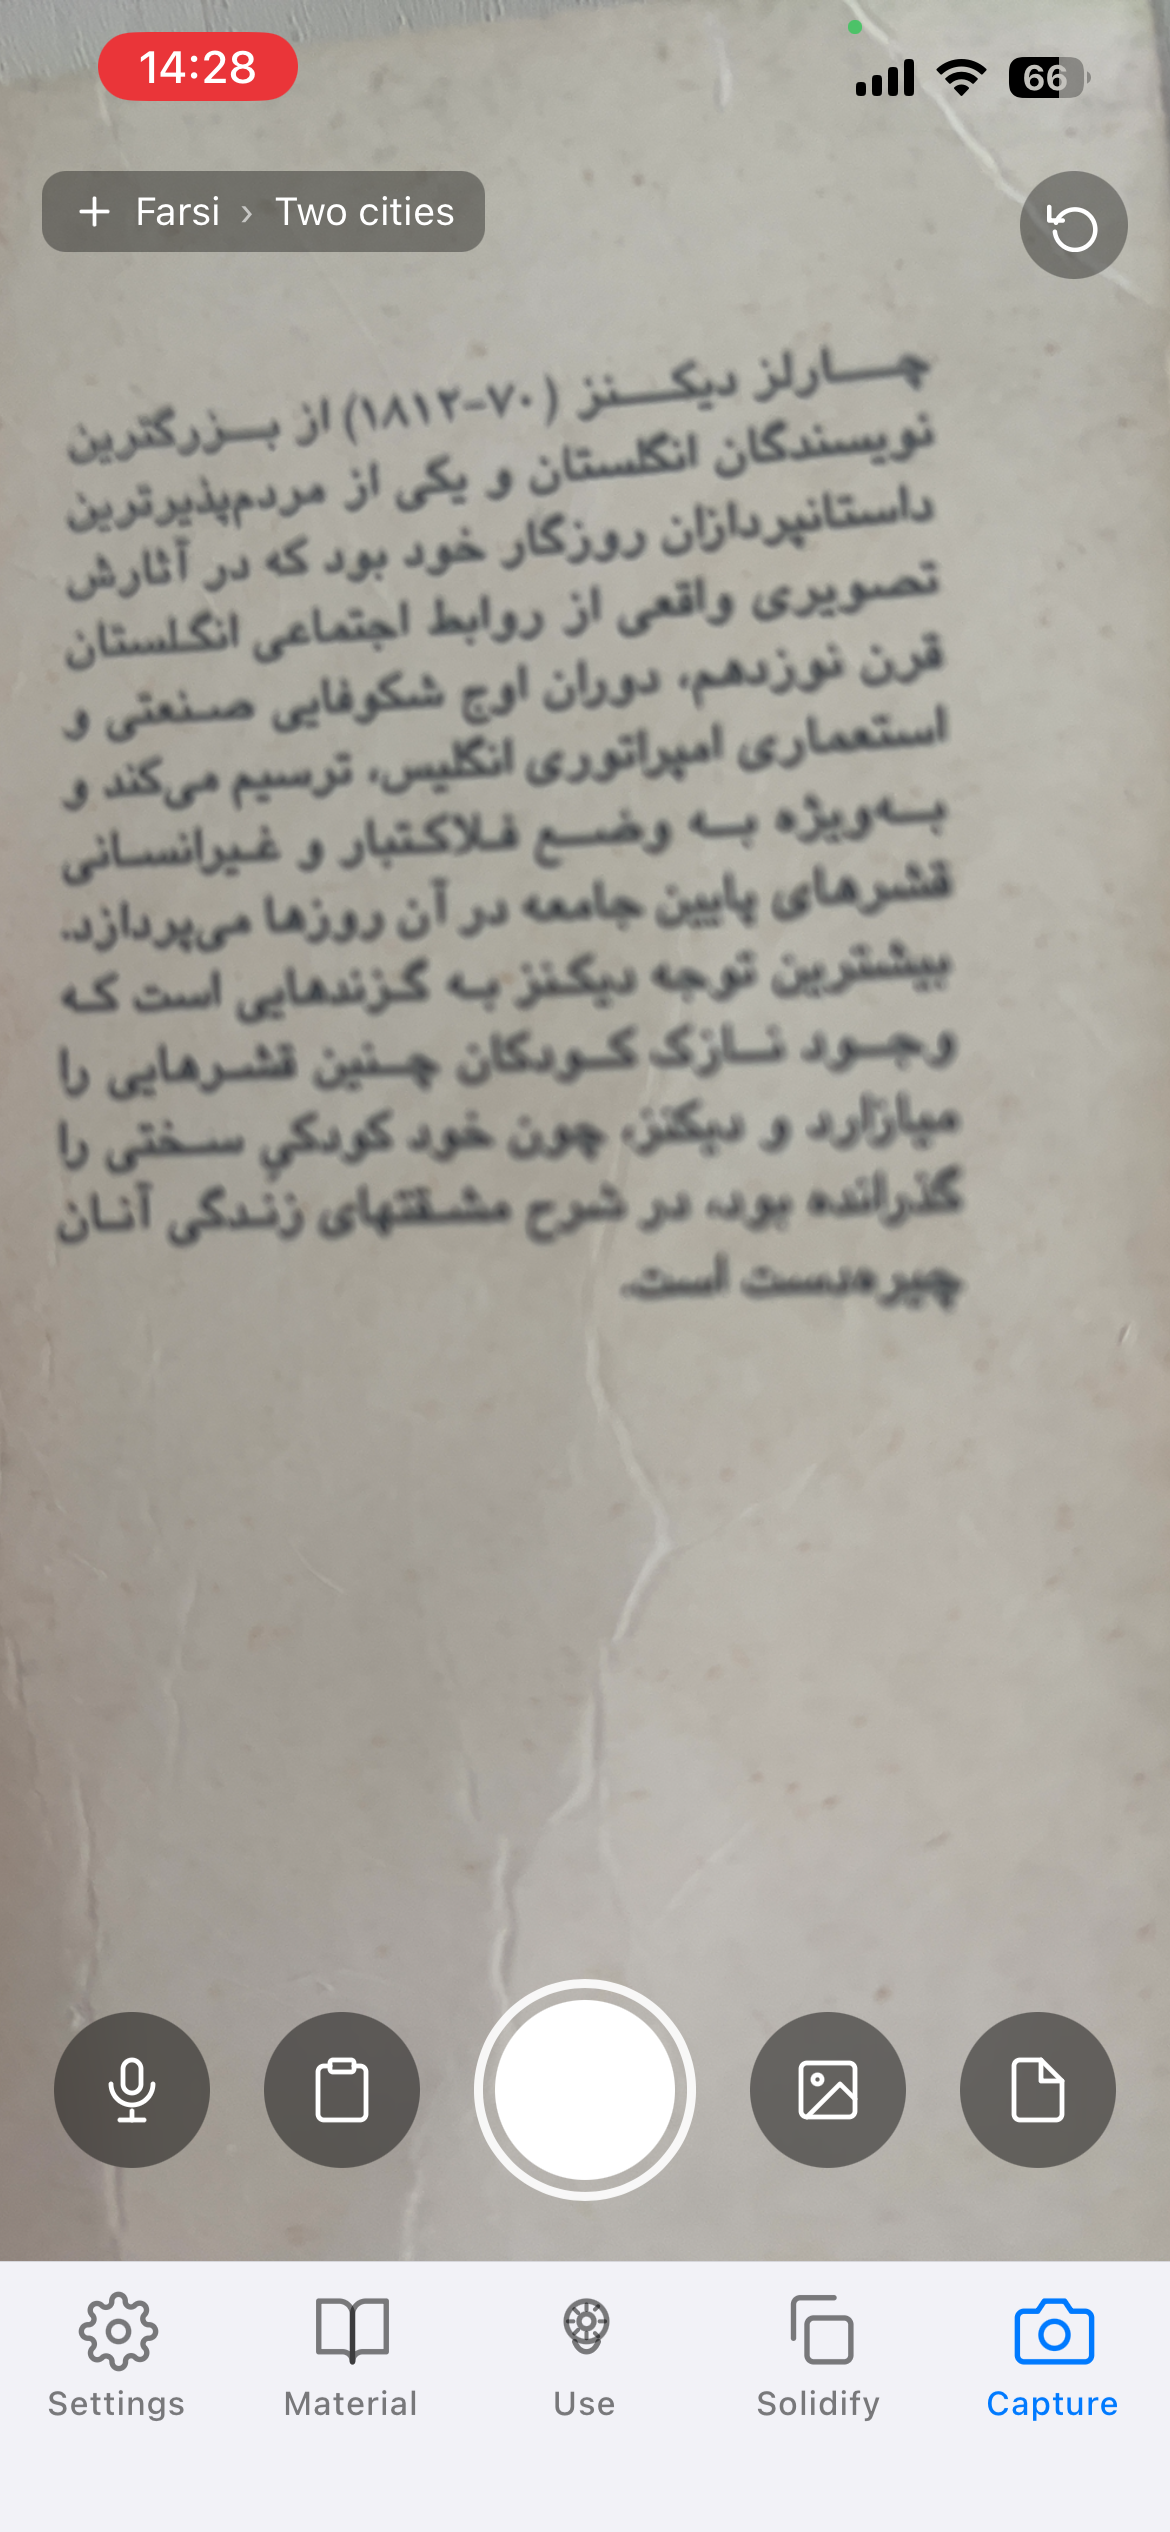 14:28
66
+ Farsi › Two cities
چارلز دیکنز (۷۰-۱۸۱۲) از بزرگترین
نویسندگان انگلستان و یکی از مردم‌پذیرترین
داستانپردازان روزگار خود بود که در آثارش
تصویری واقعی از روابط اجتماعی انگلستان
قرن نوزدهم، دوران اوج شکوفایی صنعتی و
استعماری امپراتوری انگلیس، ترسیم می‌کند و
به‌ویژه به وضع فلاکتبار و غیرانسانی
قشرهای پایین جامعه در آن روزها می‌پردازد.
بیشترین توجه دیکنز به گزندهایی است که
وجود نازک کودکان چنین قشرهایی را
میازارد و دیکنز، چون خود کودکیِ سختی را
گذرانده بود، در شرح مشقتهای زندگی آنان
چیره‌دست است.
Settings
Material
Use
Solidify
Capture